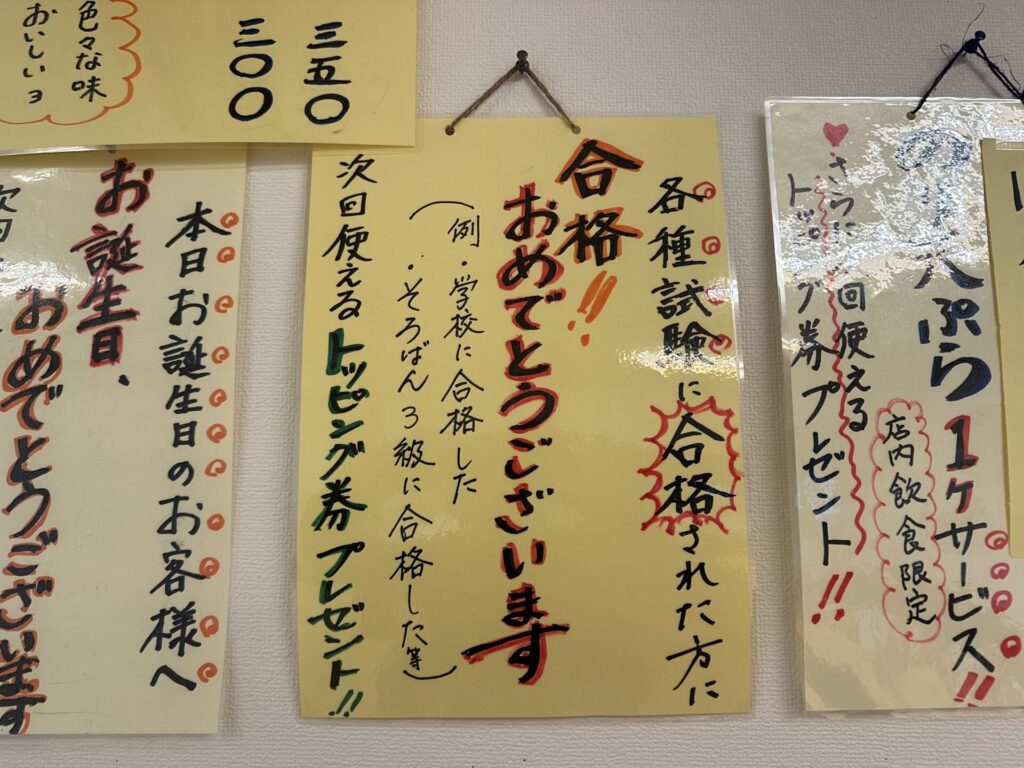 各種試験に合格された方に
合格!!
おめでとうございます
(例・学校に合格した
・そろばん3級に合格した等)
次回使えるトッピング券プレゼント!!
本日お誕生日のお客様へ
お誕生日、
おめでとうございます
三五〇
三〇〇
色々な味
おいしいヨ
ぷら1ケサービス!!
店内飲食限定
さらに 回使える
グ券プレゼント!!